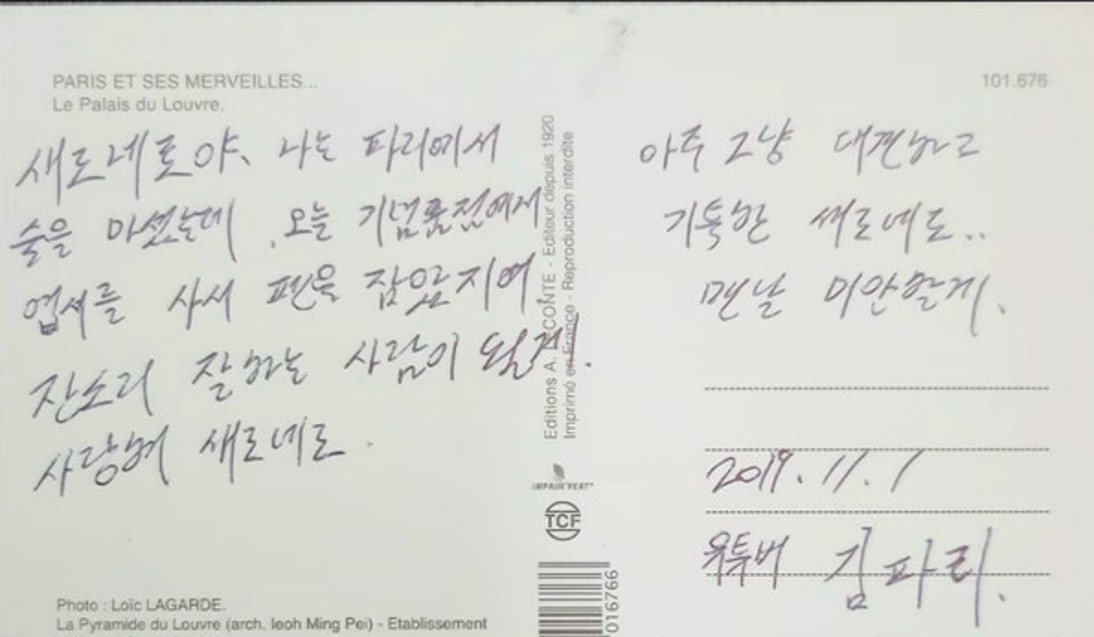 PARIS ET SES MERVEILLES...
Le Palais du Louvre.
101.676
새로네로야. 나는 파리에서
술을 마셨는데, 오늘 기념품점에서
엽서를 사서 펜을 잡았지여.
잔소리 잘하는 사람이 될게.
사랑해 새로네로.
아주 그냥 대견하고
기특한 새로네로..
맨날 미안할게.
2019.11.1
유투버 김파리.
Editions A. LECONTE - Editeur depuis 1920
Imprimé en France - Reproduction interdite
IMPRIM'VERT®
TCF
016766
Photo : Loïc LAGARDE.
La Pyramide du Louvre (arch. Ieoh Ming Pei) - Etablissement